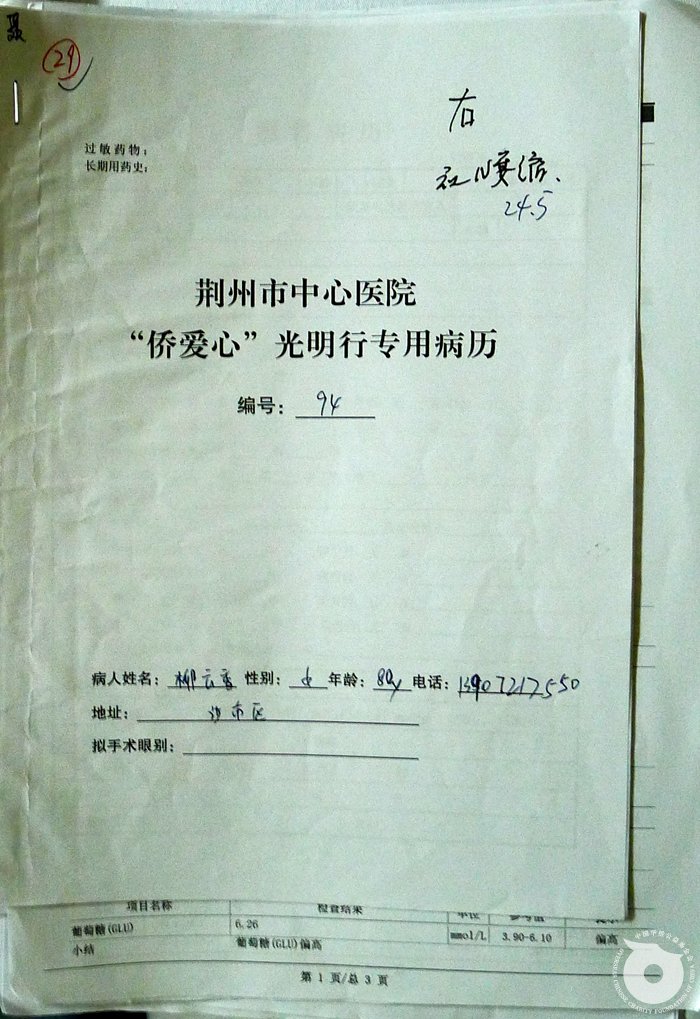 29
右
过敏药物：
长期用药史：
24.5
荆州市中心医院
“侨爱心”光明行专用病历
编号： 94
病人姓名： 柳云香 性别： 女 年龄： 80y 电话： 13907217550
地址： 沙市区
拟手术眼别：
项目名称 检查结果 单位 参考值
葡萄糖(GLU) 6.26 mmol/L 3.90-6.10 偏高
小结 葡萄糖(GLU)偏高
第 1 页/总 3 页